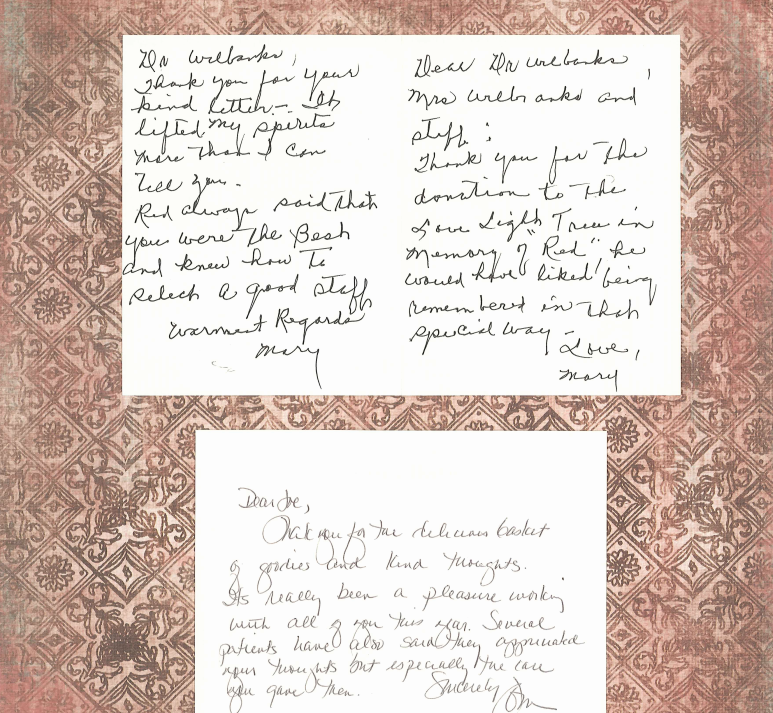 Dr Wilbanks,
Thank you for your
kind letter – It
lifted my spirits
more than I can
Tell you.
Red always said that
you were the Best
and knew how to
select a good staff
Warmest Regards
Mary
Dear Dr Wilbanks,
Mrs Wilbanks and
staff:
Thank you for the
donation to the
Love Light Tree in
Memory of "Red", he
would have liked being
remembered in that
special way –
Love,
Mary
Dear Joe,
Thank you for the delicious basket
of goodies and kind thoughts.
Its really been a pleasure working
with all of you this year. Several
patients have also said they appreciated
your thoughts but especially the care
you gave them.
Sincerely